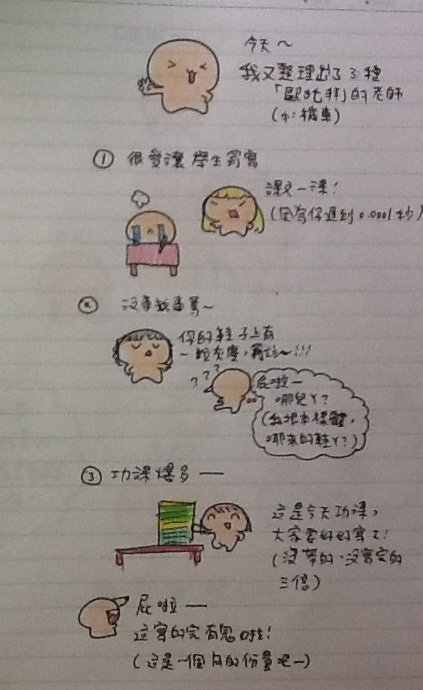 今天～
我又整理出了3種
「歐北拜」的老師
(小:機車)
① 很愛讓學生罰寫
課文一課!
(因為你遲到0.0001秒)
② 沒事就愛罵～
你的鞋子上有
一粒灰塵,罰站～!!!
???
屁啦—
哪兒ㄚ?
(我根本裸體,
哪來的鞋ㄚ?)
③ 功課爆多——
這是今天功課,
大家要好好寫ㄛ!
(沒帶的、沒寫完的
三倍)
屁啦——
這寫的完有鬼啦!
(這是一個月的份量吧—)